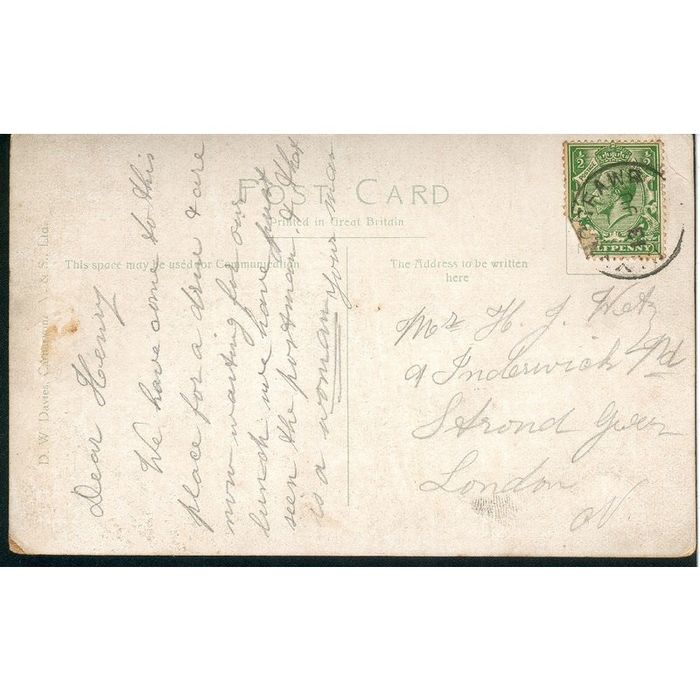 POST CARD
Printed in Great Britain
This space may be used for Communication
The Address to be written
here
D. W. Davies, & S., Ltd.
Dear Henry
We have come to this
place for a drive & are
now waiting for our
lunch we have just
seen the postman & that
is a woman your man
Mr H. J. Wetz
9 Inderwick Rd
Strond Green
London
N.
½ ½
HALFPENNY